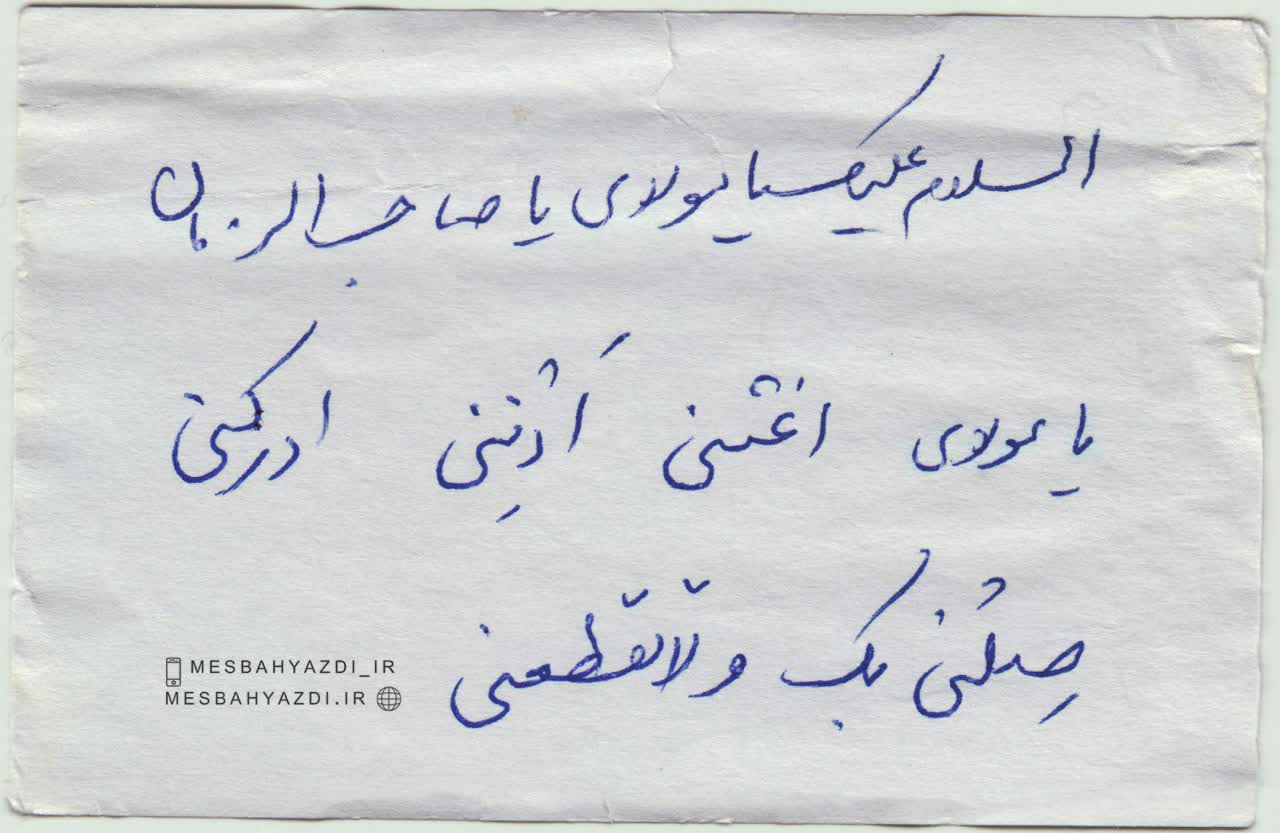 السلام علیک یا مولای یا صاحب الزمان
یا مولای اغثنی اَدْنِنی ادرکنی
صِلْنی بک ولا تقطعنی
MESBAHYAZDI_IR
MESBAHYAZDI.IR